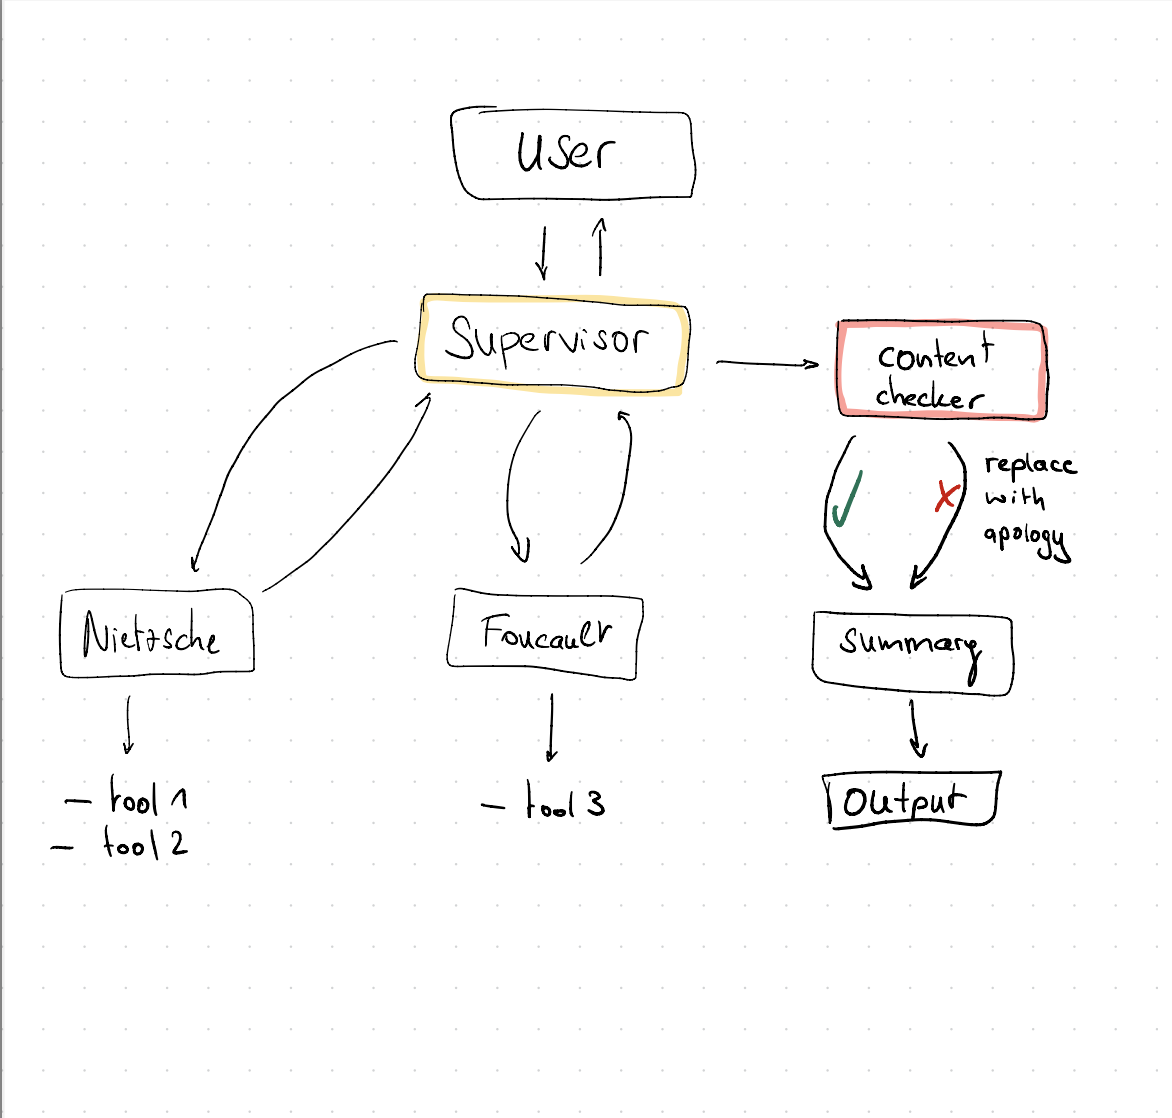 user
Supervisor
content
checker
replace
with
apology
Nietzsche
Foucault
summary
- tool 1
- tool 2
- tool 3
Output